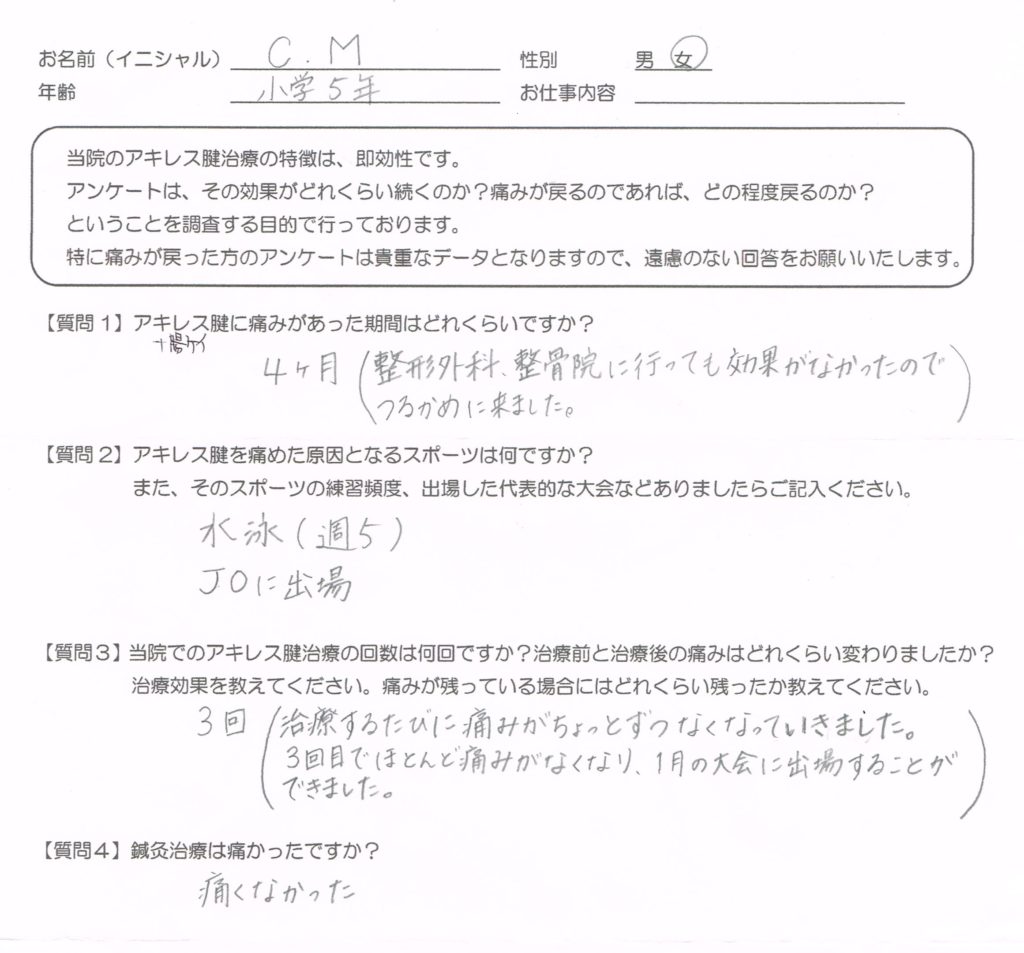 お名前（イニシャル） C.M 性別 男 女
年齢 小学5年 お仕事内容
当院のアキレス腱治療の特徴は、即効性です。
アンケートは、その効果がどれくらい続くのか？痛みが戻るのであれば、どの程度戻るのか？
ということを調査する目的で行っております。
特に痛みが戻った方のアンケートは貴重なデータとなりますので、遠慮のない回答をお願いいたします。
【質問1】アキレス腱に痛みがあった期間はどれくらいですか？
+腸ケイ
4ヶ月（整形外科、整骨院に行っても効果がなかったので
つるかめに来ました。）
【質問2】アキレス腱を痛めた原因となるスポーツは何ですか？
また、そのスポーツの練習頻度、出場した代表的な大会などありましたらご記入ください。
水泳（週5）
JOに出場
【質問3】当院でのアキレス腱治療の回数は何回ですか？治療前と治療後の痛みはどれくらい変わりましたか？
治療効果を教えてください。痛みが残っている場合にはどれくらい残ったか教えてください。
3回（治療するたびに痛みがちょっとずつなくなっていきました。
3回目でほとんど痛みがなくなり、1月の大会に出場することが
できました。）
【質問4】鍼灸治療は痛かったですか？
痛くなかった